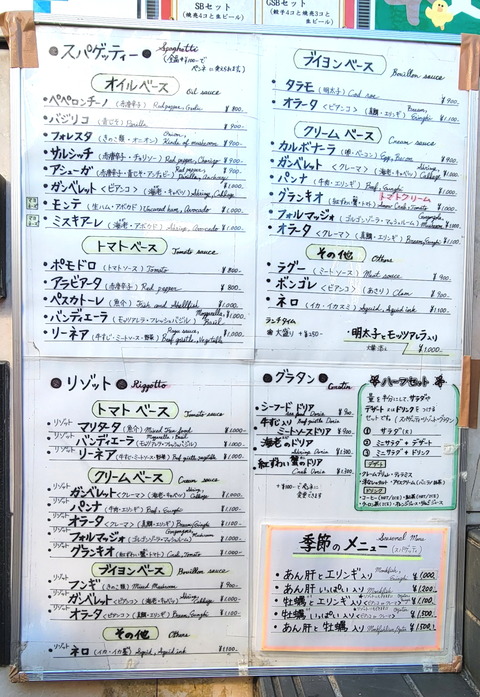 SBセット
(焼売4コと生ビール)
GSBセット
(餃子4コと焼売3コと生ビール)
スパゲッティー Spaghetti
オイルベース Oil sauce
ペペロンチーノ (赤唐辛子) Red pepper, Garlic ¥800.
バジリコ (青じそ) ¥900.
フォレスタ (きのこ類・オニオン) Onion, Kinds of mushroom ¥900.
サルシッチ (赤唐辛子・チョリソー) Red pepper, Chorizo ¥900.
アシューガ (赤唐辛子・青じそ・アンチョビ) ¥900.
ガンベレット <ビアンコ> (海老・キャベツ) Shrimp, Cabbage ¥1,000.
モンテ (生ハム・アボカド) Uncured ham, Avocado ¥1,000.
ミスキアーレ (海老・アボカド) Shrimp, Avocado ¥1,000.
トマトベース Tomato sauce
ポモドロ (トマトソース) Tomato ¥800.
アラビアータ (赤唐辛子) Red pepper ¥800.
ペスカトーレ (魚介) Fish and Shellfish ¥1,000.
バンディエーラ (モッツァレラ・フレッシュバジル) Mozzarella, Basil ¥1,000.
リーネア (牛すじ・ミートソース・野菜) Beef gristle, Vegetable ¥1,000.
ブイヨンベース Bouillon sauce
タラモ (明太子) Cod roe ¥900.
オラータ <ビアンコ> (真鯛・エリンギ) Bream, Eringhi ¥1,100.
クリームベース Cream sauce
カルボナーラ (卵・ベーコン) Egg, Bacon ¥900.
ガンベレット <クレーマ> (海老・キャベツ) Shrimp, Cabbage ¥1,000.
パンナ (牛肉・エリンギ) Beef, Eringhi ¥1,000.
グランキオ (紅ずわい蟹・トマト) トマトクリーム Snow Crab, Tomato ¥1,000.
フォルマッジオ (ゴルゴンゾーラ・マッシュルーム) Gorgonzola, mushroom ¥1,000.
オラータ <クレーマ> (真鯛・エリンギ) Bream, Eringhi ¥1,100.
その他 Others
ラグー (ミートソース) Meat sauce ¥900.
ボンゴレ <ビアンコ> (あさり) Clam ¥900.
ネロ (イカ・イカスミ) Squid, Squid ink ¥1,100.
ランチタイム
※大盛り +¥250.
・明太子とモッツァレラ入り ¥1,000.
リゾット Rizzotto
トマトベース Tomato sauce
リゾット マリタータ (魚介) Mixed Sea food ¥1,000.
リゾット バンディエーラ (モッツァレラ・フレッシュバジル) Mozzarella, Basil ¥1,000.
リゾット リーネア (牛すじ・ミートソース・野菜) Beef gristle, vegetable ¥1,000.
クリームベース Cream sauce
リゾット ガンベレット <クレーマ> (海老・キャベツ) Shrimp, Cabbage ¥1,000.
リゾット パンナ (牛肉・エリンギ) Beef, Eringhi ¥1,100.
リゾット オラータ <クレーマ> (真鯛・エリンギ) Bream, Eringhi ¥1,100.
リゾット フォルマッジオ (ゴルゴンゾーラ・マッシュルーム) ¥1,000.
リゾット グランキオ (紅ずわい蟹・トマト) Crab, Tomato ¥1,000.
ブイヨンベース Bouillon sauce
リゾット フンギ (きのこ類) Mixed Mushroom ¥900.
リゾット ガンベレット <ビアンコ> (海老・キャベツ) Shrimp, Cabbage ¥1,000.
リゾット オラータ <ビアンコ> (真鯛・エリンギ) Bream, Eringhi ¥1,100.
その他 Others
リゾット ネロ (イカ・イカ墨) Squid, Squid ink ¥1,100.
グラタン Gratin
シーフードドリア ¥900.
牛すじ入りミートソースドリア ¥900.
海老のドリア Shrimp Doria ¥1,300.
紅ずわい蟹のドリア Crab Doria ¥1,300.
ハーフセット
量を半分にして、サラダや
デザート又はドリンクをつける
セットです。
① サラダ(大)
② ミニサラダ + デザート
③ ミニサラダ + ドリンク
デザート
ドリンク
季節のメニュー Seasonal Menu
(スパゲッティ)
・あん肝とエリンギ入り Monkfish, Eringhi ¥1,000
・あん肝いっぱい入り Monkfish ¥1,200
・牡蠣とエリンギ入り ¥1,100
・牡蠣いっぱい入り ¥1,500
・あん肝と牡蠣入り ¥1,500